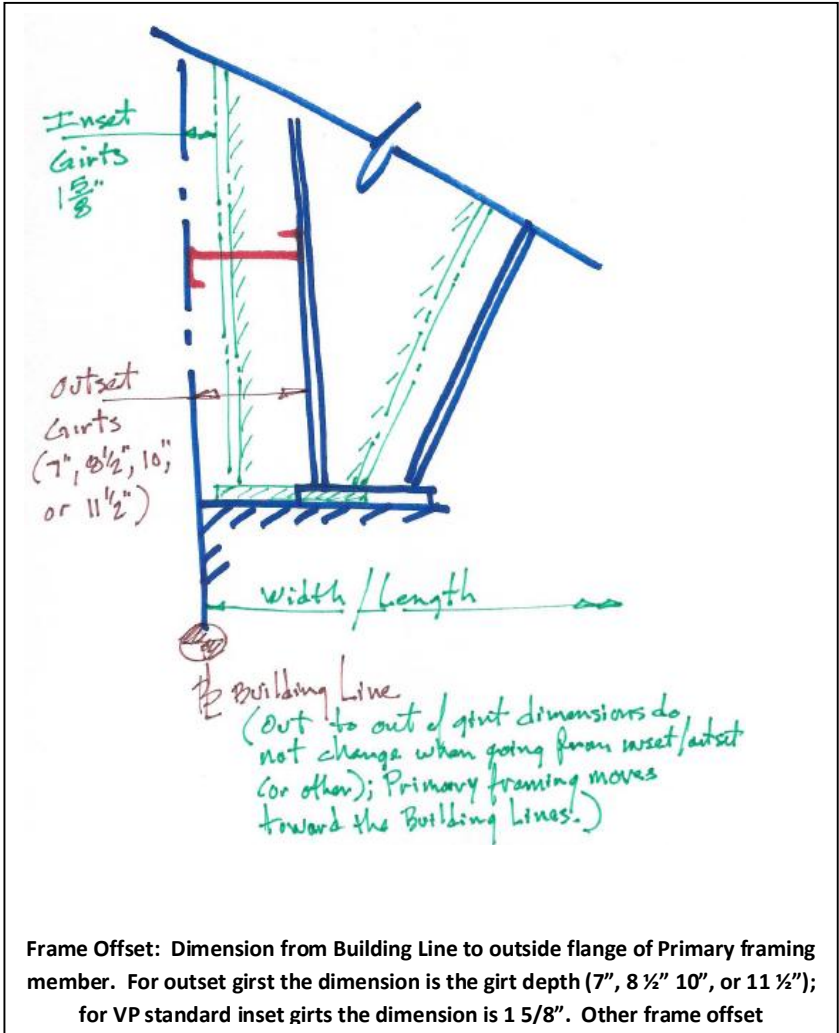 Inset
Girts
1 5/8"
Outset
Girts
(7", 8 1/2", 10",
or 11 1/2")
Width / Length
Building Line
(Out to out of girt dimensions do
not change when going from inset/outset
(or other); Primary framing moves
toward the Building Lines.)
Frame Offset: Dimension from Building Line to outside flange of Primary framing
member. For outset girst the dimension is the girt depth (7”, 8 ½” 10”, or 11 ½”);
for VP standard inset girts the dimension is 1 5/8”. Other frame offset